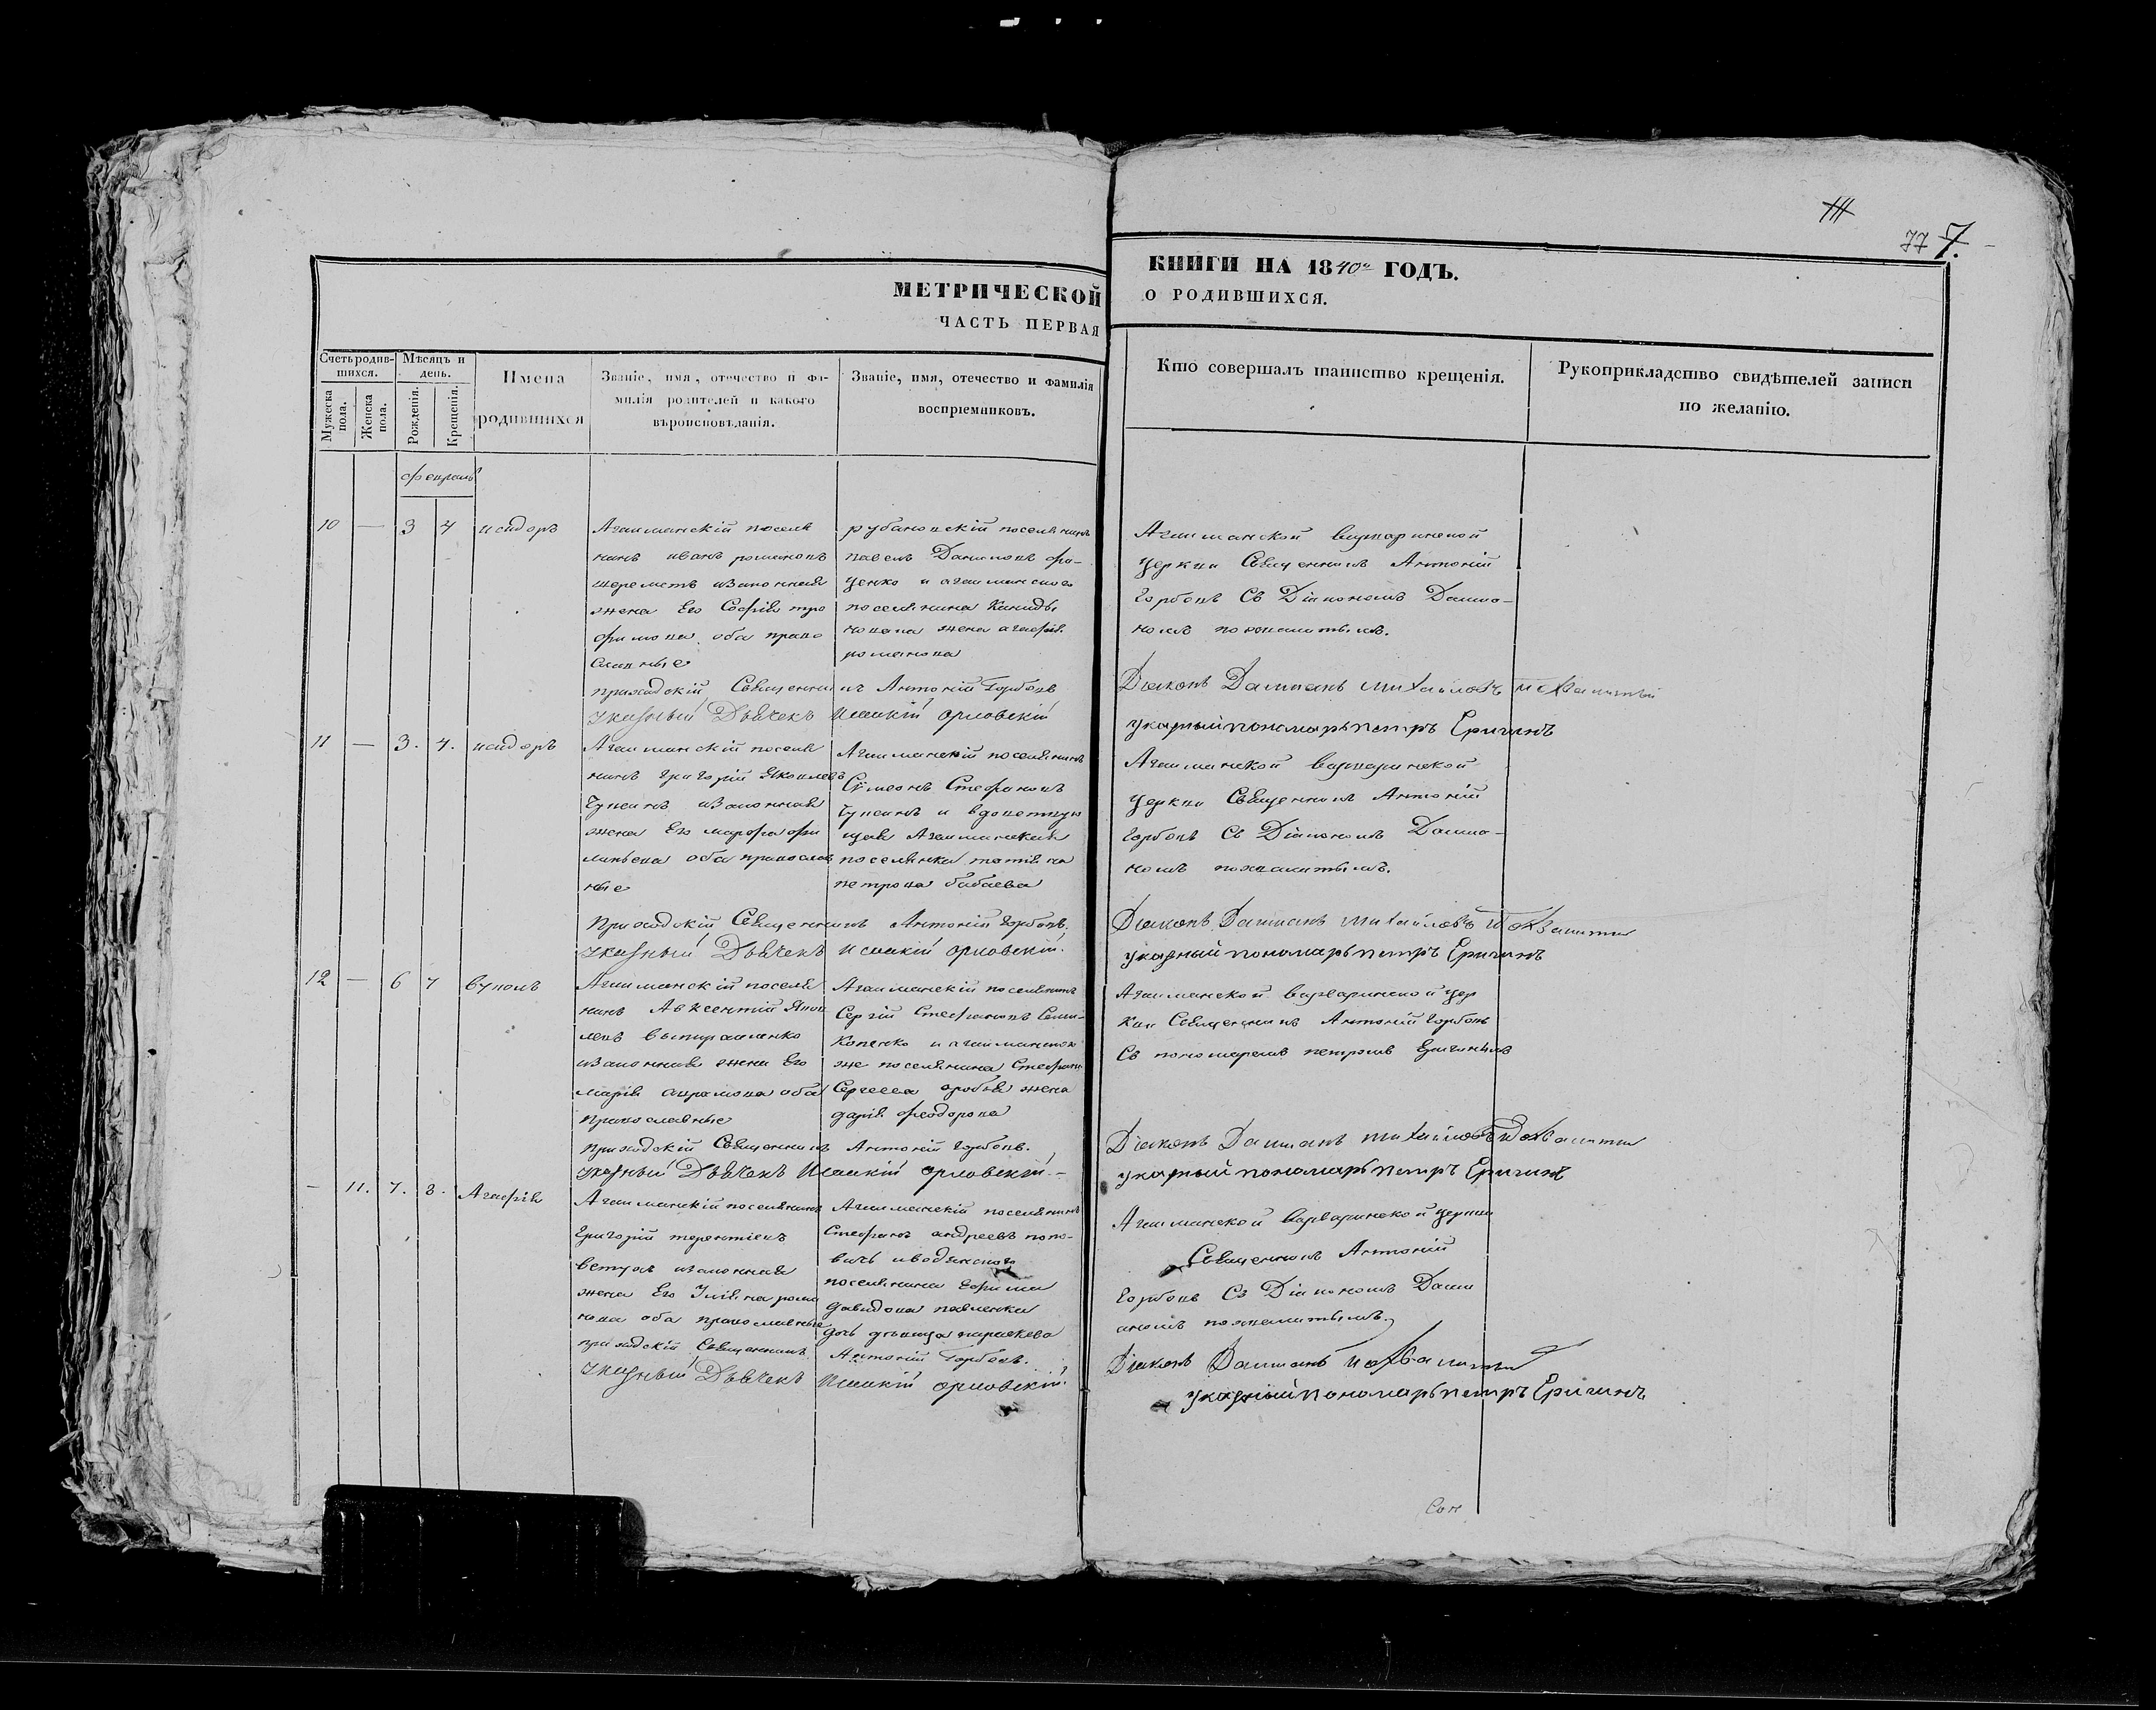 77 7.
МЕТРИЧЕСКОЙ
ЧАСТЬ ПЕРВАЯ
КНИГИ НА 1840й ГОДЪ.
О РОДИВШИХСЯ.
Счетъ родив-
шихся.
Мѣсяцъ и
день.
Мужеска
пола.
Женска
пола.
Рожденія.
Крещенія.
Имена
родившихся
Званіе, имя, отечество и фа-
милія родителей и какого
вѣроисповѣданія.
Званіе, имя, отечество и фамилія
воспріемниковъ.
Кто совершалъ таинство крещенія.
Рукоприкладство свидѣтелей записи
по желанію.
февраль
10 — 3 4 исидоръ
Агаиманскій поселя
нинъ иванъ романовъ
изаконная
жена Его Софія тро
фимова оба право
славные
рубановскій поселянинъ
павелъ Даниловъ фи-
ценко и агаиманского
поселянина
жена агафія
романова
Агаиманской варваринской
церкви Священникъ Антоній
Горбовъ Съ Діакономъ Дамиа-
номъ похвалитымъ.
приходскій Священникъ Антоній Горбовъ
указный Дьячекъ Исакій орловскій
Діаконъ Даміанъ михайловъ похвалитый
указный пономарь петръ Еригинъ
11 — 3. 4. исидоръ
Агаиманскій поселя
нинъ григорій Яковлевъ
Чупинъ изаконная
жена Его марфа фи
липьева оба православ
ные
Агаиманскій поселянинъ
Сѵмеонъ Стефановъ
Чупинъ и вдовствую
щая Агаиманская
поселянка татіяна
петрова бабаева
Агаиманской варваринской
церкви Священникъ Антоній
Горбовъ Съ Діакономъ Дамиа-
номъ похвалитымъ.
Приходскій Священникъ Антоній Горбовъ.
указный Дьячекъ Исакій орловскій.
Діаконъ Даміанъ михайловъ похвалитый
указный пономарь петръ Еригинъ
12 — 6 7 вуколъ
Агаиманскій поселя
нинъ Авксентій Яков
левъ
изаконная жена Его
марія аврамова оба
православные
Агаиманскій поселянинъ
Сергій Стефановъ Семи-
копенко и агаиманского
же поселянина Стефана
Сергеева жена
дарія феодорова
Агаиманской варваринской цер
кви Священникъ Антоній Горбовъ
Съ пономаремъ петромъ Еригинымъ
приходскій Священникъ Антоній Горбовъ.
указный Дьячекъ Исакій орловскій.
Діаконъ Даміанъ михайловъ похвалитый
указный пономарь петръ Еригинъ
— 11. 7. 8. Агафія
Агаиманскій поселянинъ
Григорій терентіевъ
изаконная
жена Его Іуліяна рома
нова оба православные
Агаиманскій поселянинъ
Стефанъ андреевъ попо-
вичъ иводянского
поселянина Ефима
давидова павленка
дочь девица параскева
Агаиманской варваринской церкви
Священникъ Антоній
Горбовъ Съ Діакономъ Дами
аномъ похвалитымъ
приходскій Священникъ Антоній Горбовъ.
указный Дьячекъ Исакій орловскій.
Діаконъ Даміанъ похвалитый
указный пономарь петръ Еригинъ